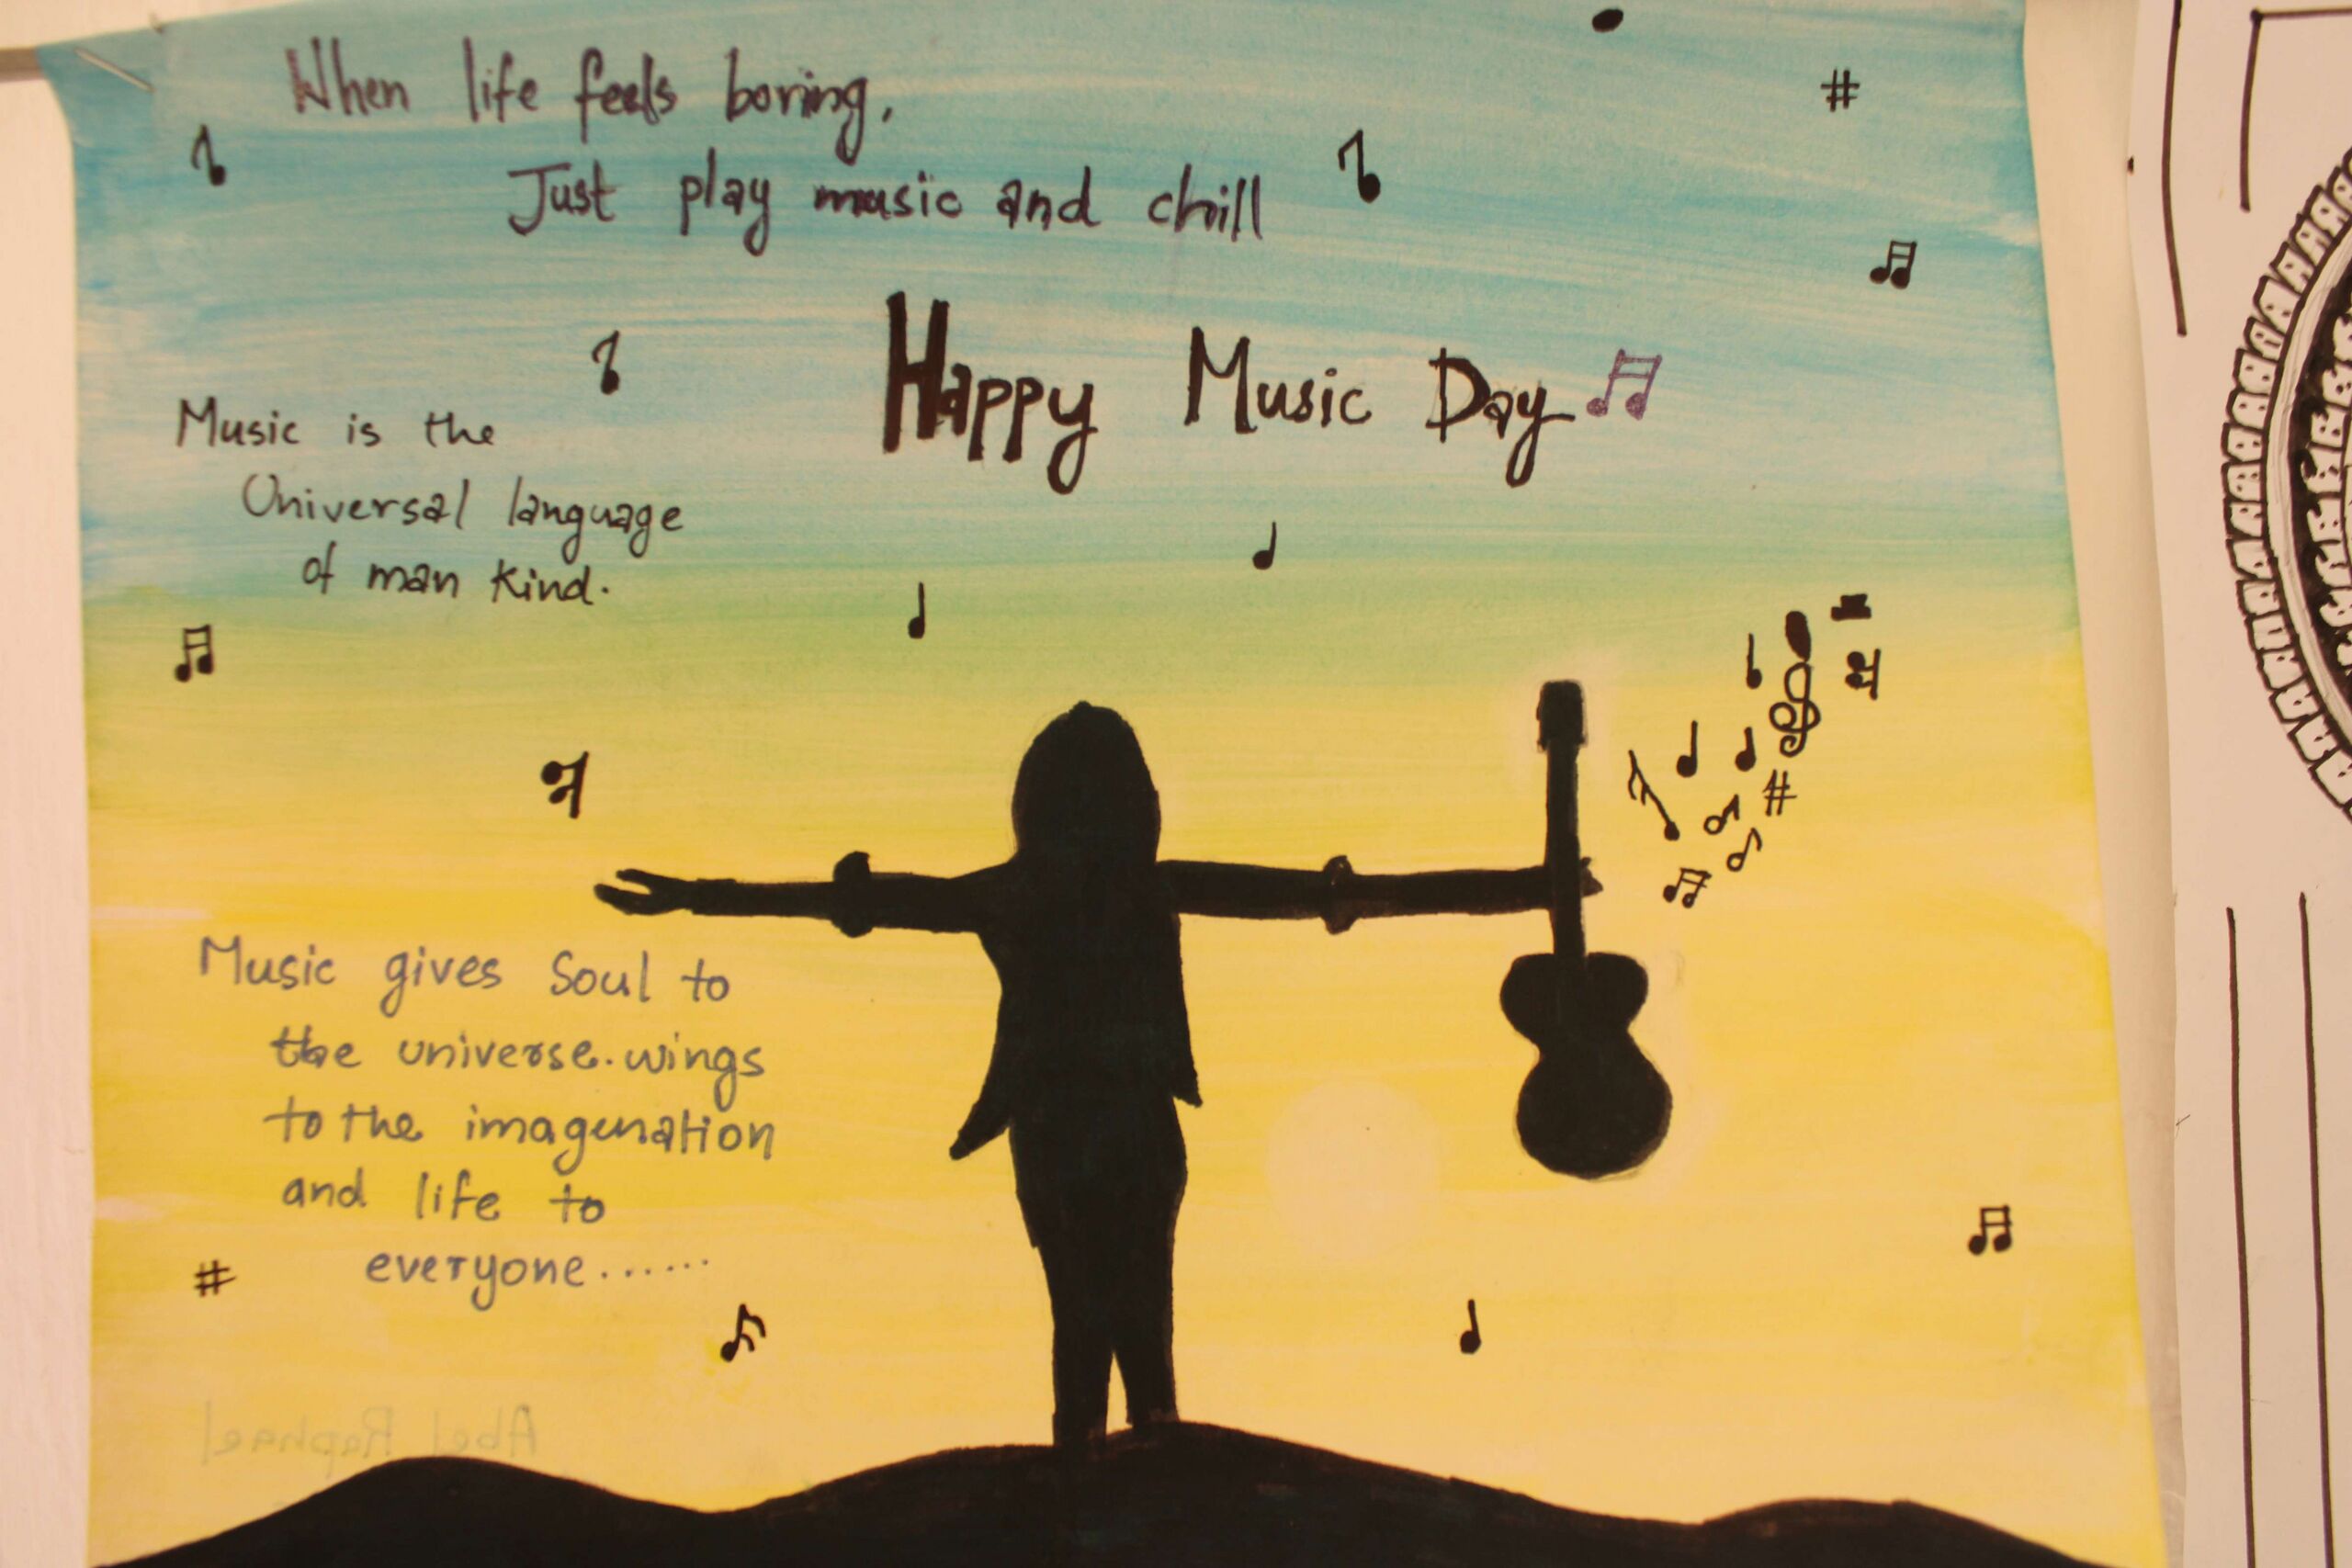 When life feels boring,
Just play music and chill
Happy Music Day
Music is the
Universal language
of man kind.
Music gives Soul to
the universe. wings
to the imagunation
and life to
everyone......
Abel Raphael